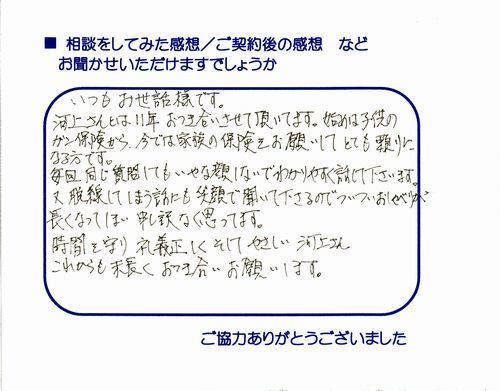 ■ 相談をしてみた感想／ご契約後の感想 など
お聞かせいただけますでしょうか
いつもお世話様です。
河上さんとは11年お付き合いさせて頂いてます。始めは子供の
ガン保険から、今では家族の保険をお願いしてとても頼りに
なる方です。
毎回同じ質問してもいやな顔しないでわかりやすく話して下さいます。
又脱線してしまう話にも笑顔で聞いて下さるのでついついおしゃべりが
長くなってしまい申し訳なく思ってます。
時間を守り礼義正しくそしてやさしい河上さん
これからも末長くおつき合いお願いします。
ご協力ありがとうございました